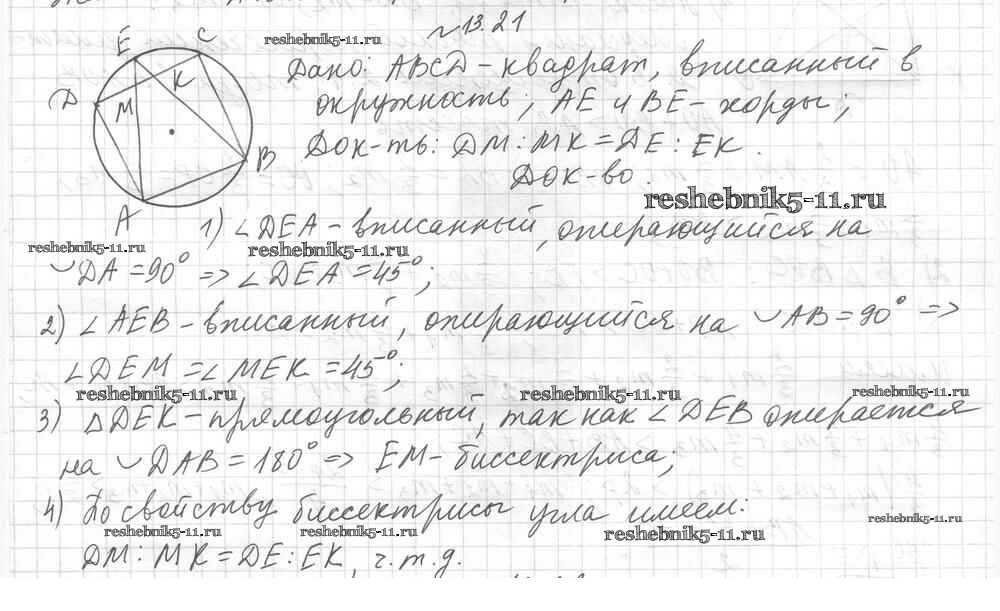 №13.21
reshebnik5-11.ru
E C D K M B A
Дано: ABCD - квадрат, вписанный в
окружность; AE и BE - хорды;
Док-ть: DM : MK = DE : EK.
Док-во.
reshebnik5-11.ru
1) ∠DEA - вписанный, опирающийся на
reshebnik5-11.ru reshebnik5-11.ru
◡DA = 90° => ∠DEA = 45°;
2) ∠AEB - вписанный, опирающийся на ◡AB = 90° =>
∠DEM = ∠MEK = 45°;
reshebnik5-11.ru reshebnik5-11.ru reshebnik5-11.ru
3) △DEK - прямоугольный, так как ∠DEB опирается
на ◡DAB = 180° => EM - биссектриса;
4) По свойству биссектрисы угла имеем:
reshebnik5-11.ru reshebnik5-11.ru reshebnik5-11.ru reshebnik5-11.ru
DM : MK = DE : EK, ч.т.д.